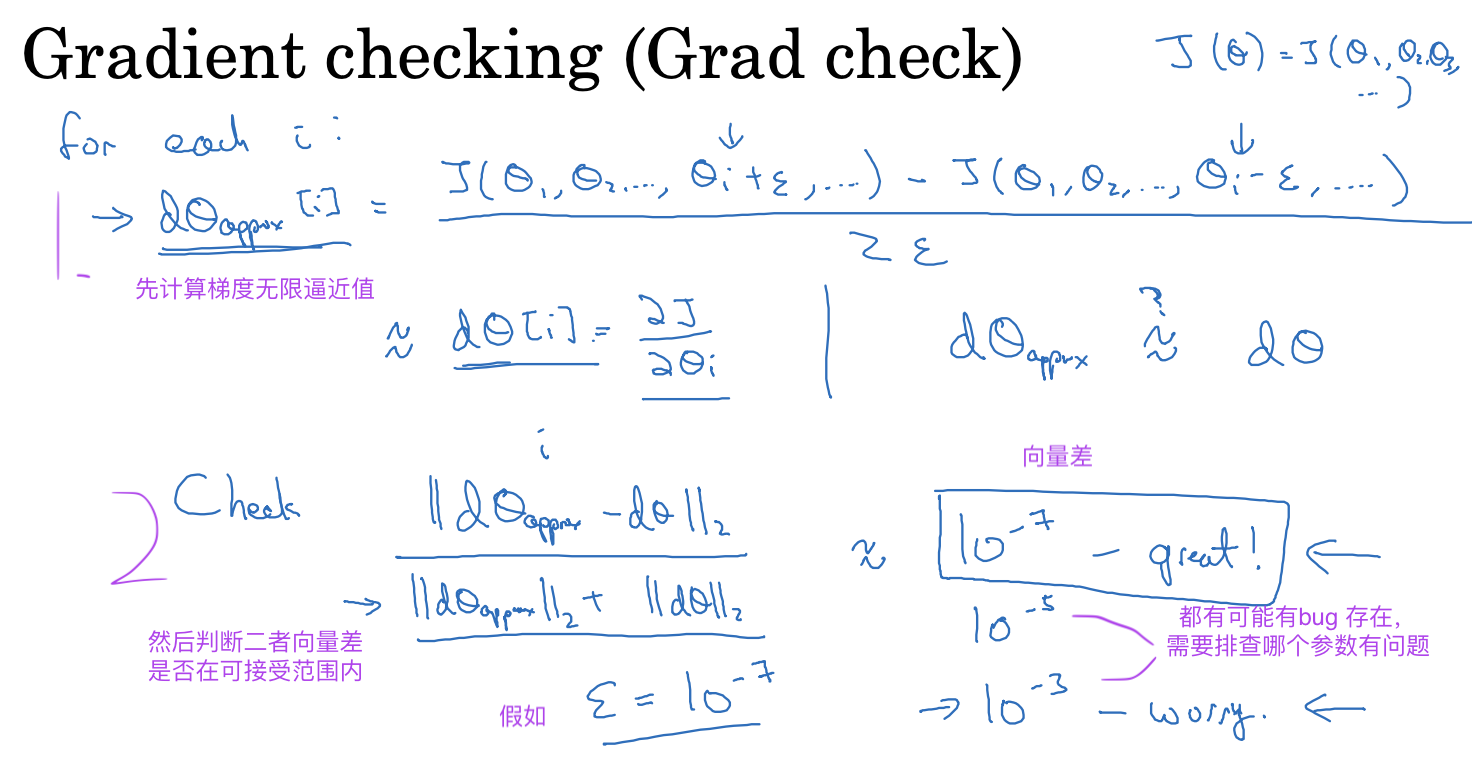 Gradient checking (Grad check)
J(θ) = J(θ₁, θ₂, θ₃, ...)
for each i:
→ dθapprox[i] = (J(θ₁, θ₂, ..., θᵢ+ε, ...) - J(θ₁, θ₂, ..., θᵢ-ε, ...)) / 2ε
1.
先计算梯度无限逼近值
≈ dθ[i] = ∂J/∂θᵢ | dθapprox ≈? dθ
i
向量差
2
Check ||dθapprox - dθ||₂ / (||dθapprox||₂ + ||dθ||₂) ≈ 10⁻⁷ - great! ←
然后判断二者向量差
是否在可接受范围内
10⁻⁵
都有可能有bug 存在,
需要排查哪个参数有问题
假如 ε = 10⁻⁷
→ 10⁻³ - worry. ←